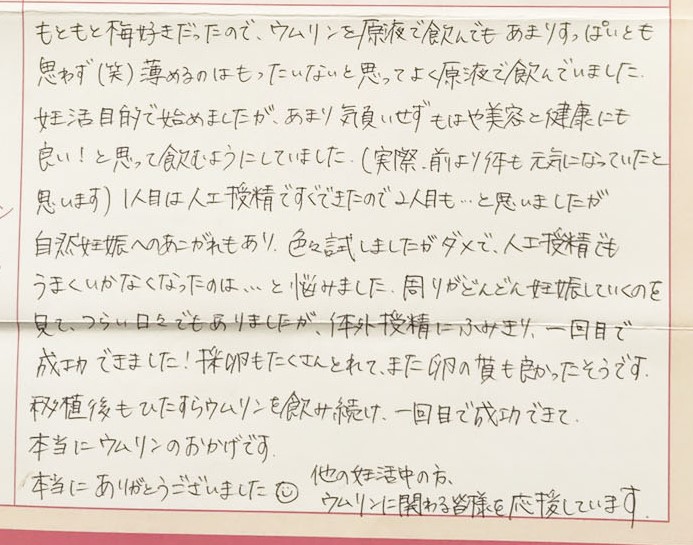 もともと梅好きだったので、ウムリンを原液で飲んでもあまりすっぱいとも
思わず(笑)薄めるのはもったいないと思ってよく原液で飲んでいました。
妊活目的で始めましたが、あまり気負いせずもはや美容と健康にも
良い！と思って飲むようにしていました。(実際、前より体も元気になっていたと
思います)1人目は人工授精ですぐできたので2人目も…と思いましたが
自然妊娠へのあこがれもあり、色々試しましたがダメで、人工授精でも
うまくいかなくなったのは…と悩みました。周りがどんどん妊娠していくのを
見て、つらい日々でもありましたが、体外授精にふみきり、一回目で
成功できました！採卵もたくさんとれて、また卵の質も良かったそうです。
移植後もひたすらウムリンを飲み続け、一回目で成功できて、
本当にウムリンのおかげです。
本当にありがとうございました
他の妊活中の方、
ウムリンに関わる皆様を応援しています。